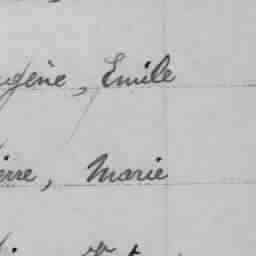 ugène, Emile
ierre, Marie